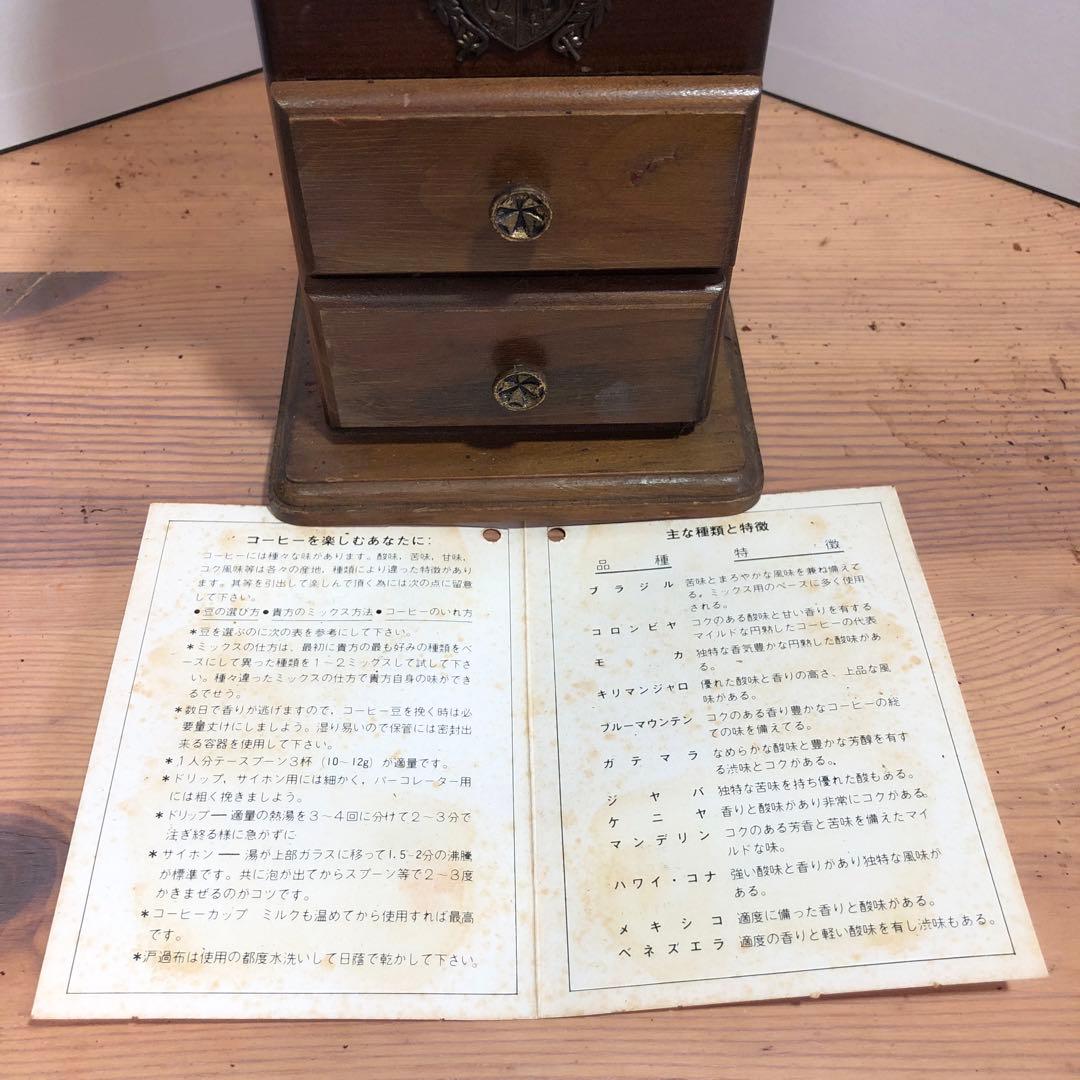 コーヒーを楽しむあなたに:
コーヒーには種々な味があります。酸味，苦味，甘味，
コク風味等は各々の産地，種類により違った特徴があり
ます。其等を引出して楽しんで頂く為には次の点に留意
して下さい。
●豆の選び方●貴方のミックス方法●コーヒーのいれ方
＊豆を選ぶのに次の表を参考にして下さい。
＊ミックスの仕方は、最初に貴方の最も好みの種類をベ
ースにして異った種類を1～2ミックスして試して下さ
い。種々違ったミックスの仕方で貴方自身の味ができ
るでせう。
＊数日で香りが逃げますので，コーヒー豆を挽く時は必
要量丈けにしましよう。湿り易いので保管には密封出
来る容器を使用して下さい。
＊1人分テースプーン3杯（10～12g）が適量です。
＊ドリップ，サイホン用には細かく，パーコレーター用
には粗く挽きましよう。
＊ドリップ―適量の熱湯を3～4回に分けて2～3分で
注ぎ終る様に急がずに
＊サイホン ― 湯が上部ガラスに移って1.5-2分の沸騰
が標準です。共に泡が出てからスプーン等で2～3度
かきまぜるのがコツです。
＊コーヒーカップ ミルクも温めてから使用すれば最高
です。
＊沪過布は使用の都度水洗いして日蔭で乾かして下さい。
主な種類と特徴
品種 特徴
ブラジル 苦味とまろやかな風味を兼ね備えて
る。ミックス用のベースに多く使用
される。
コロンビヤ コクのある酸味と甘い香りを有する
マイルドな円熟したコーヒーの代表
モカ 独特な香気豊かな円熟した酸味があ
る。
キリマンジャロ 優れた酸味と香りの高さ、上品な風
味がある。
ブルーマウンテン コクのある香り豊かなコーヒーの総
ての味を備えてる。
ガテマラ なめらかな酸味と豊かな芳醇を有す
る渋味とコクがある。
ジヤバ 独特な苦味を持ち優れた酸もある。
ケニヤ 香りと酸味があり非常にコクがある。
マンデリン コクのある芳香と苦味を備えたマイ
ルドな味。
ハワイ・コナ 強い酸味と香りがあり独特な風味が
ある。
メキシコ 適度に備った香りと酸味がある。
ベネズエラ 適度の香りと軽い酸味を有し渋味もある。